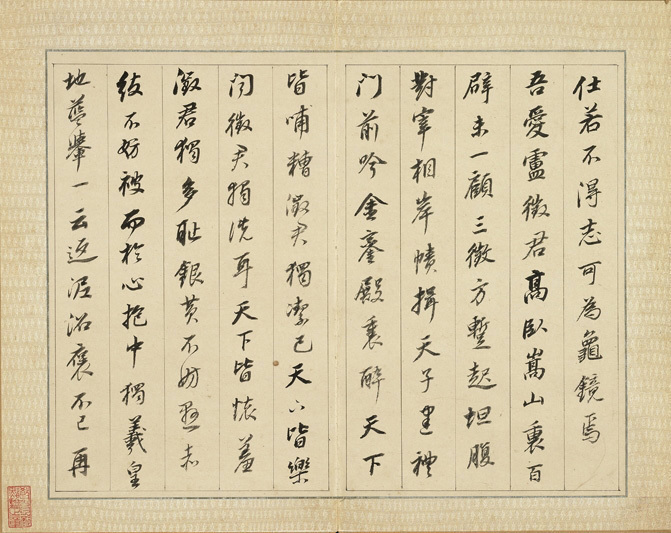 仕若不得志可為龜鏡焉
吾愛盧徵君高臥嵩山裏百
辟未一顧三徵方暫起坦腹
對宰相岸幘揖天子建禮
門前吟金鑾殿裏醉天下
皆哺糟徵君獨潔己天下皆樂
聞徵君獨洗耳天下皆懷羞
徵君獨多恥銀黃不妨懸赤
紱不妨被而於心抱中獨羲皇
地籃轝一云返泥詔褒不已再